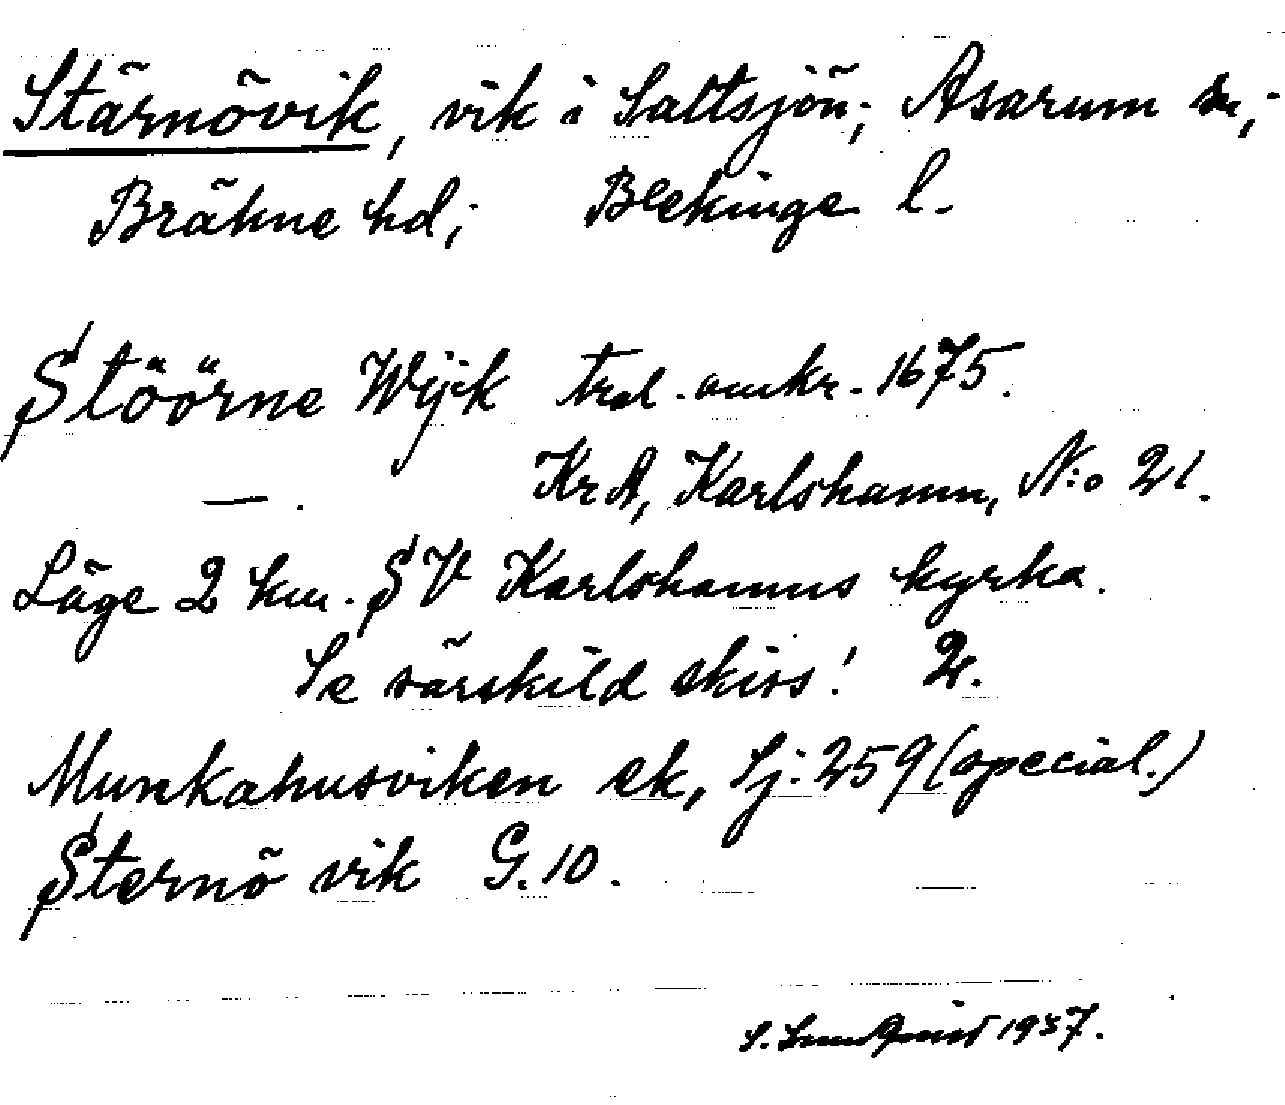 Stärnövik, vik i Saltsjön; Asarum sn;
Bräkne hd; Blekinge l.
Stöörne Wijk trol. omkr. 1675.
—. KrA, Karlshamn, N:o 21.
Läge 2 km. SV Karlshamns kyrka.
Se särskild skiss! 2.
Munkahusviken ek, Sj: 259 (special.)
Sternö vik G. 10.
S. Lundquist 1937.